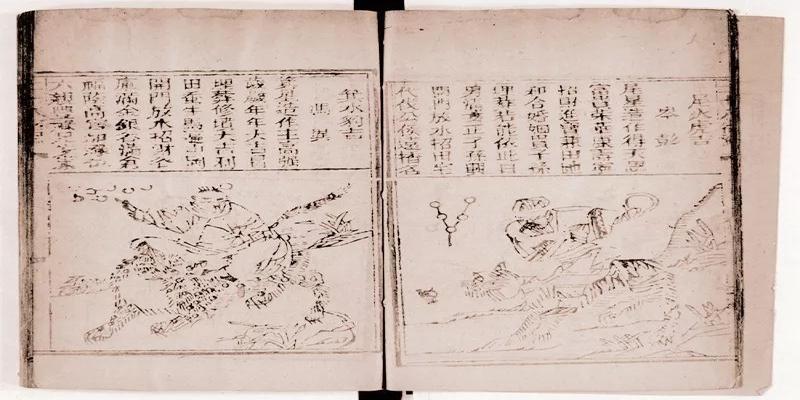 尾火虎吉
岑彭
尾星造作得天恩
富貴榮華壽
招財進寶置田地
和合婚姻貴子孫
埋葬若能依此日
男清女正子孫興
開門放水招田宅
代代公侯遠播名
箕水豹吉
馮異
箕星造作主高強
歲歲年年大吉昌
埋葬修墳大吉利
田蚕牛馬遍山岡
開門放水招財谷
滿金銀谷滿倉
福蔭高官加祿位
六親豐祿